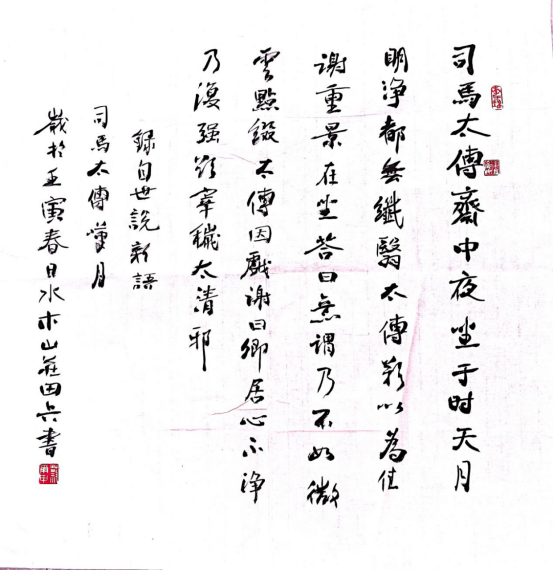 司馬太傅齋中夜坐于时天月
明浄都無纖翳太傅歎以為佳
謝重景在坐答曰無謂乃不如微
雲點綴太傅因戲謝曰卿居心不浄
乃復强欲宰穢太清邪
録自世說新語
司馬太傅嘆月
歲於壬寅春日水木山莊田兵書